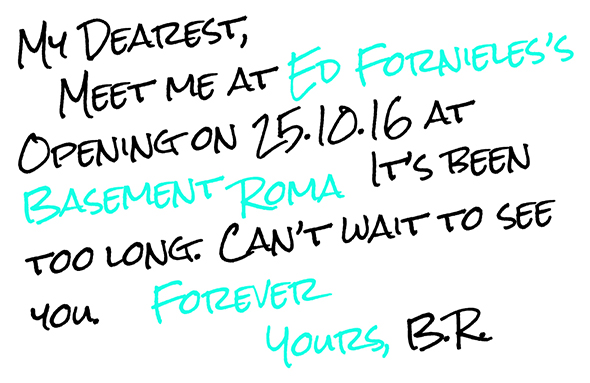 My Dearest,
Meet me at Ed Fornieles's
Opening on 25.10.16 at
Basement Roma It's been
too long. Can't wait to see
you. Forever
Yours, B.R.